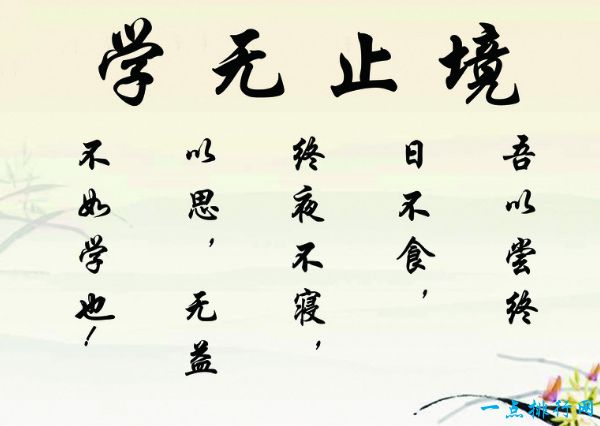 学无止境
吾以尝终
日不食，
终夜不寝，
以思，无益
不如学也！
一点排行网